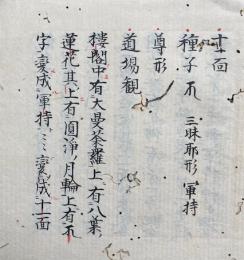 十一面
種子 𑖮 三昧耶形 軍持
尊形
道場観
楼閣中有大曼荼羅上有八葉
蓮花其上有圓浄月輪上有𑖮
字変成軍持々々変成十一面